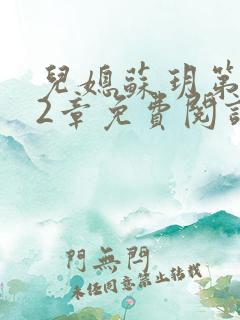 兒媳蘇玥第
2章免費閱讀
門無悶
未经同意禁止转载